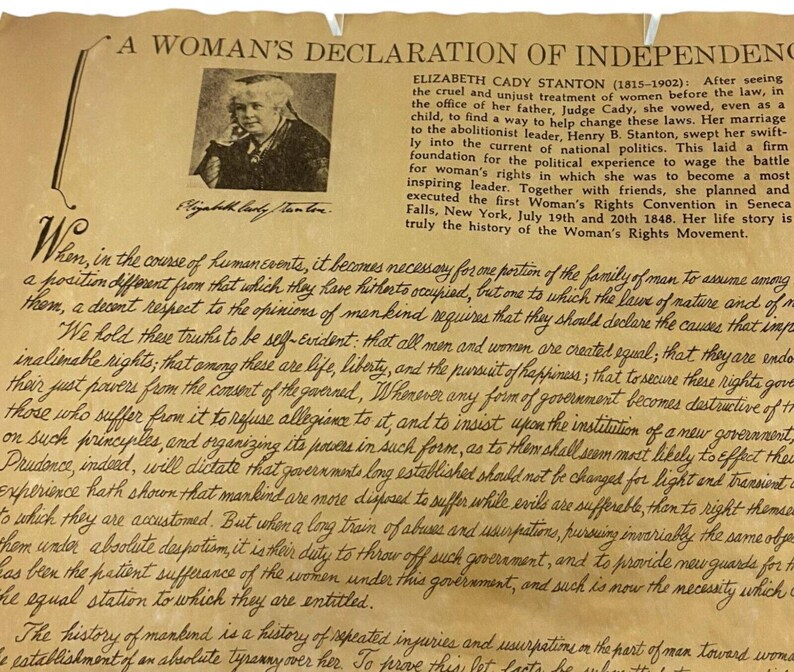 A WOMAN'S DECLARATION OF INDEPENDENC
ELIZABETH CADY STANTON (1815–1902): After seeing
the cruel and unjust treatment of women before the law, in
the office of her father, Judge Cady, she vowed, even as a
child, to find a way to help change these laws. Her marriage
to the abolitionist leader, Henry B. Stanton, swept her swift-
ly into the current of national politics. This laid a firm
foundation for the political experience to wage the battle
for woman's rights in which she was to become a most
inspiring leader. Together with friends, she planned and
executed the first Woman's Rights Convention in Seneca
Falls, New York, July 19th and 20th 1848. Her life story is
truly the history of the Woman's Rights Movement.
Elizabeth Cady Stanton.
When, in the course of human events, it becomes necessary for one portion of the family of man to assume among
a position different from that which they have hitherto occupied, but one to which the laws of nature and of n
them, a decent respect to the opinions of mankind requires that they should declare the causes that imp
We hold these truths to be self-evident: that all men and women are created equal; that they are endo
inalienable rights; that among these are life, liberty, and the pursuit of happiness; that to secure these rights gove
their just powers from the consent of the governed, Whenever any form of government becomes destructive of th
those who suffer from it to refuse allegiance to it, and to insist upon the institution of a new government,
on such principles, and organizing its powers in such form, as to them shall seem most likely to effect thei
Prudence, indeed, will dictate that governments long established should not be changed for light and transient
experience hath shown that mankind are more disposed to suffer while evils are sufferable, than to right themse
to which they are accustomed. But when a long train of abuses and usurpations, pursuing invariably the same obje
them under absolute despotism, it is their duty to throw off such government, and to provide new guards for th
has been the patient sufferance of the women under this government, and such is now the necessity which
the equal station to which they are entitled.
The history of mankind is a history of repeated injuries and usurpations on the part of man toward woma
e establishment of an absolute tyranny over her. To prove this let facts be submitted